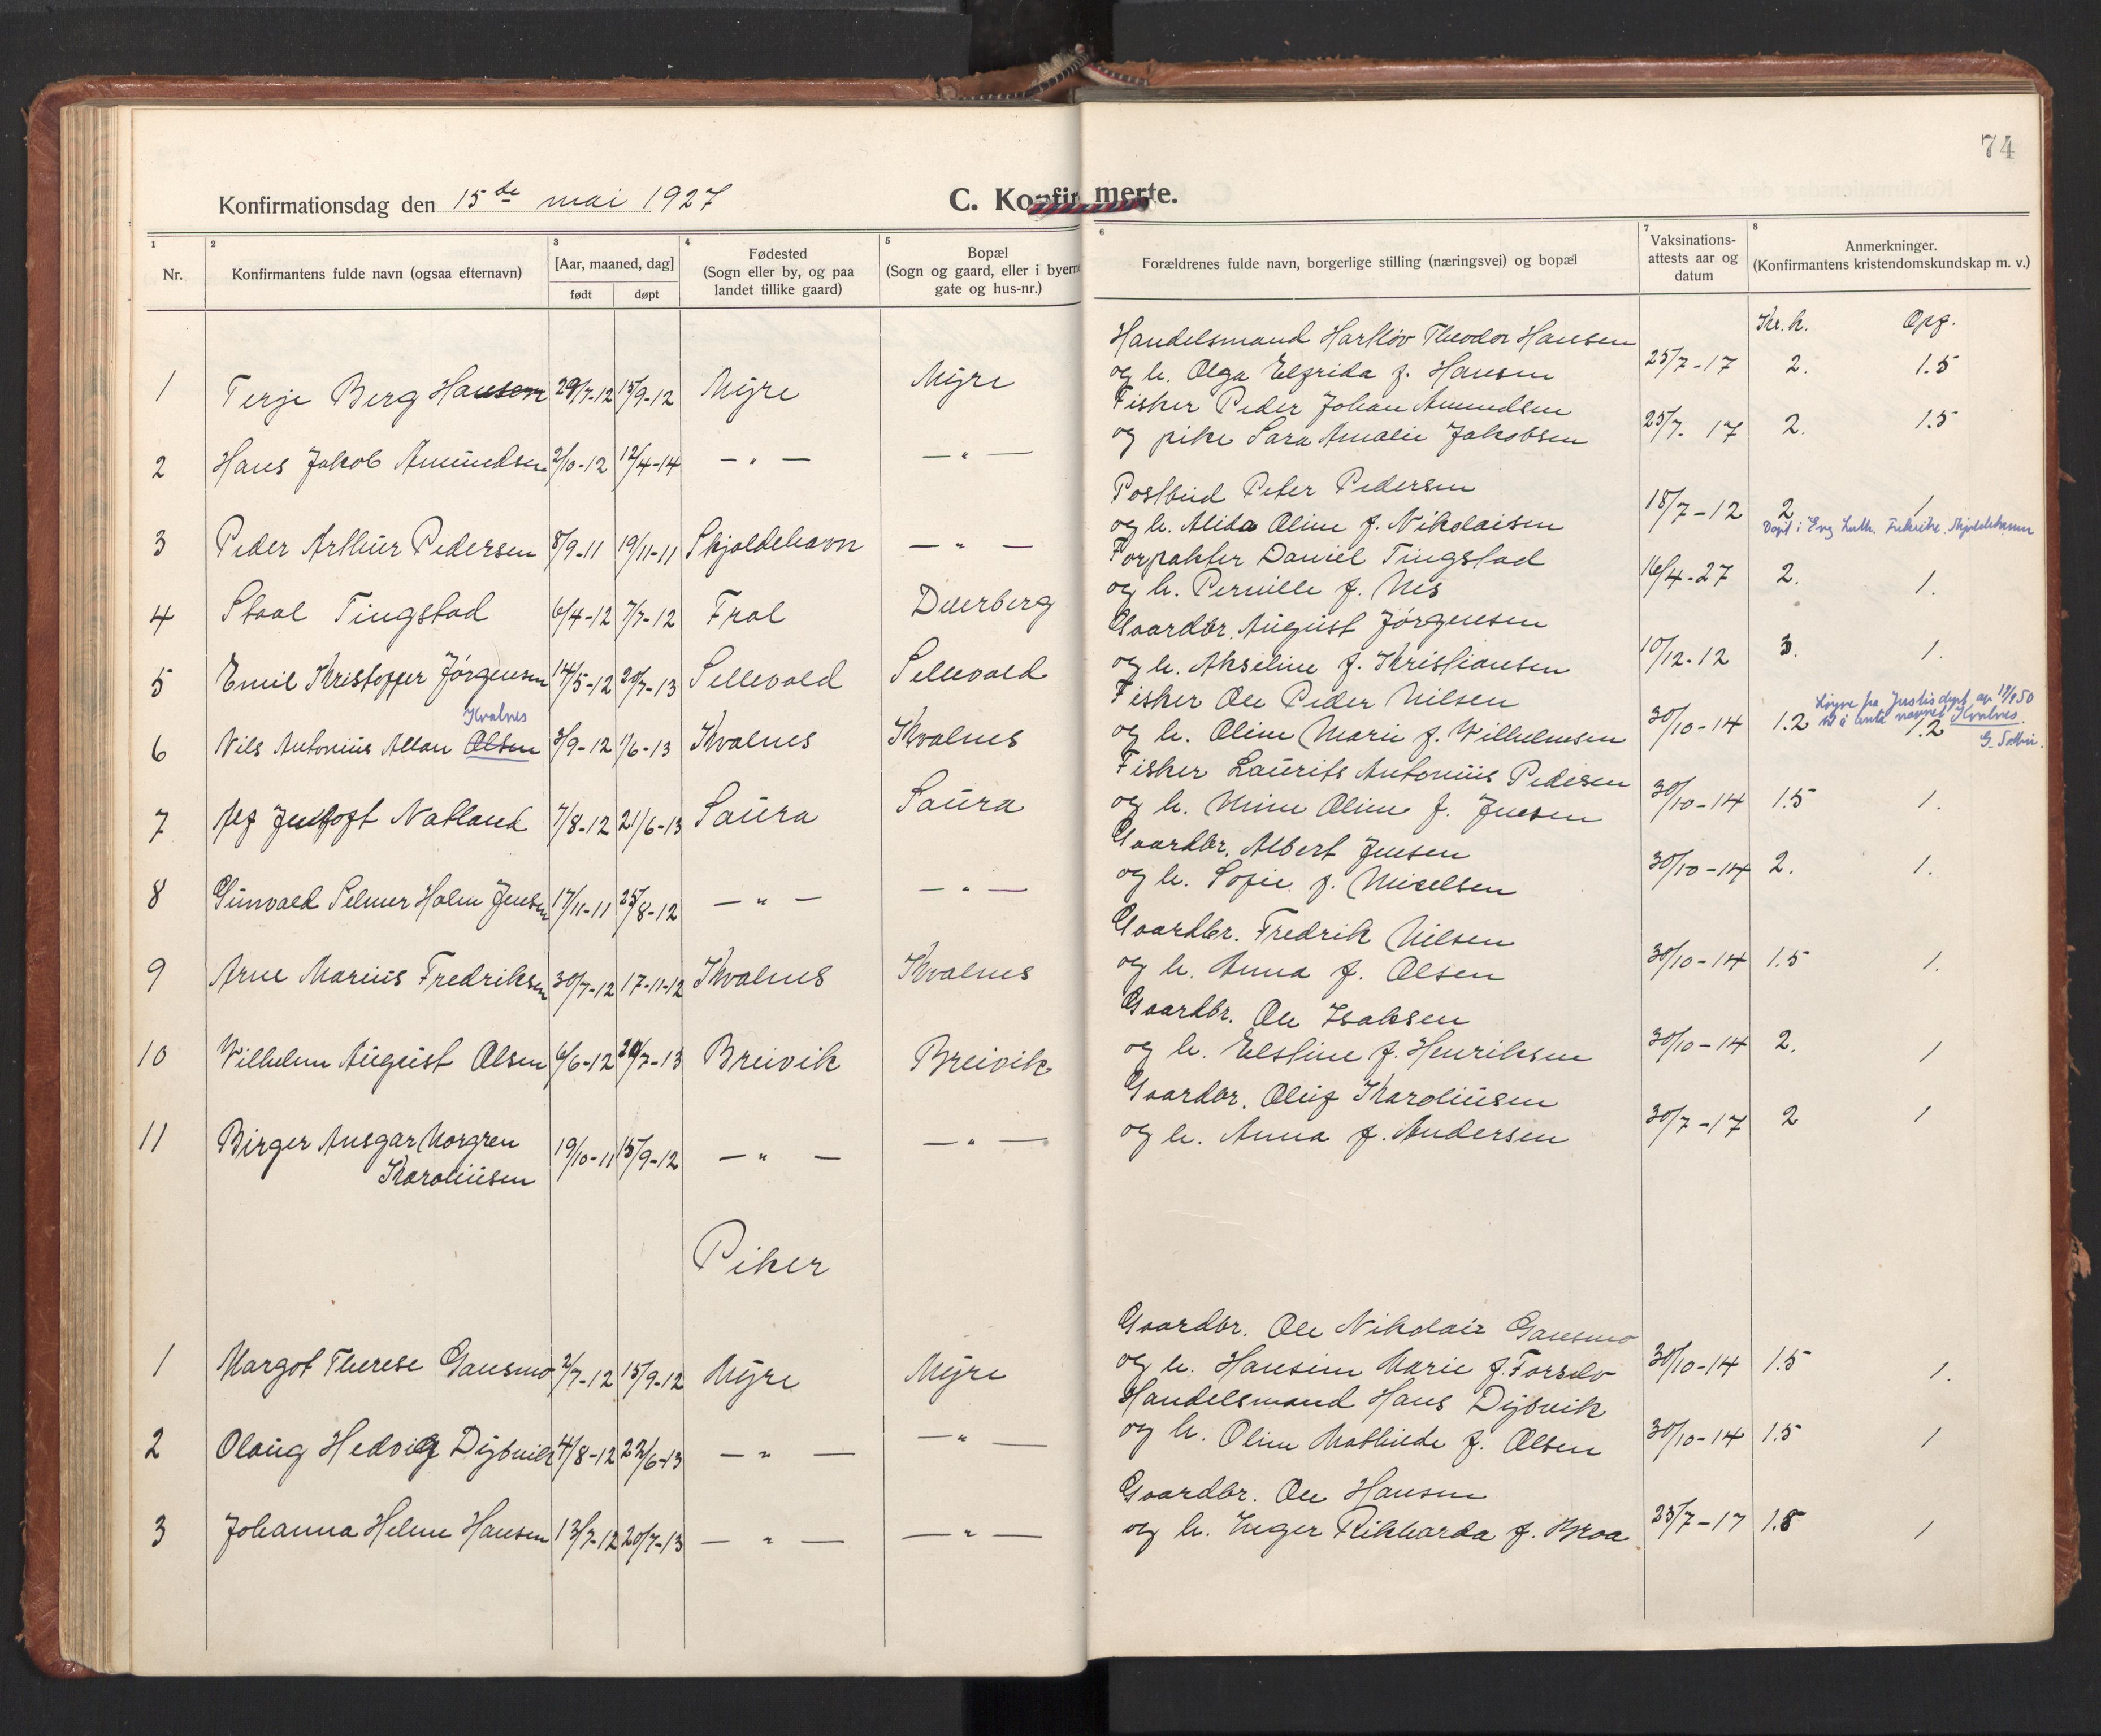 74
Konfirmationsdag den 15de mai 1927
C. Konfirmerte.
1 2 3 4 5 6 7 8
Nr.
Konfirmantens fulde navn (ogsaa efternavn)
[Aar, maaned, dag]
født døpt
Fødested
(Sogn eller by, og paa
landet tillike gaard)
Bopæl
(Sogn og gaard, eller i byerne
gate og hus-nr.)
Forældrenes fulde navn, borgerlige stilling (næringsvei) og bopæl
Vaksinations-
attests aar og
datum
Anmerkninger.
(Konfirmantens kristendomskundskap m. v.)
Kr. k. Opf.
Handelsmand Hartløv Theodor Hansen
1 Terje Berg Hansen 29/7-12 15/9-12 Myre Myre og h. Olga Elfrida f. Hansen 25/7-17 2. 1.5
Fisker Peder Johan Amundsen
2 Hans Jakob Amundsen 2/10-12 12/4-14 — " — — " — og pike Sara Amalie Jakobsen 25/7-17 2. 1.5
Postbud Peter Pedersen
3 Peder Arthur Pedersen 8/9-11 19/11-11 Skjoldehavn — " — og h. Alida Oline f. Nikolaisen 18/7-12 2 1
Døpt i Evg Luth. Frikirke. Skjoldehamn
Forpakter Daniel Tingstad
4 Staal Tingstad 6/4-12 7/7-12 Frol Dverberg og h. Pernille f. Nes 16/4-27 2. 1.
Gaardbr. August Jørgensen
5 Emil Kristoffer Jørgensen 14/5-12 20/7-13 Sellevold Sellevold og h. Akseline f. Kristiansen 10/12-12 3. 1.
Fisker Ole Peder Nilsen
Kvalnes
6 Nils Antonius Allan Olsen 3/9-12 1/6-13 Kvalnes Kvalnes og h. Oline Marie f. Wilhelmsen 30/10-14 1.2 1.2
Løyve fra Justisdept av 19/9 50
til å anta navnet Kvalnes.
Fisker Laurits Antonius Pedersen
7 Natland 7/8-12 21/6-13 Saura Saura og h. Mine Oline f. Jensen 30/10-14 1.5 1.
Gaardbr. Albert Jensen
8 Gunvald Selmer Holm Jensen 17/11-11 25/8-12 — " — — " — og h. Sofie f. Mikelsen 30/10-14 2. 1.
Gaardbr. Fredrik Nilsen
9 Arne Marius Fredriksen 30/7-12 17-11-12 Kvalnes Kvalnes og h. Anna f. Olsen 30/10-14 1.5 1.
Gaardbr. Ole Isaksen
10 Wilhelm August Olsen 6/6-12 20/7-13 Breivik Breivik og h. Elstine f. Henriksen 30/10-14 2. 1
Gaardbr. Oluf Karoliusen
11 Birger Ansgar Norgren 19/10-11 15/9-12 — " — — " — og h. Anna f. Andersen 30/7-17 2 1
Karoliusen
Piker
Gaardbr. Ole Nikolai Gausmo
1 Margot Therese Gausmo 2/7-12 15/9-12 Myre Myre og h. Hansine Marie f. Forselv 30/10-14 1.5 1.
Handelsmand Hans Dybvik
2 Olaug Hedvig Dybvik 4/8-12 22/6-13 — " — — " — og h. Oline Mathilde f. Olsen 30/10-14 1.5 1
Gaardbr. Ole Hansen
3 Johanna Helene Hansen 13/7-12 20/7-13 — " — — " — og h. Inger Rikharda f. Broa 25/7-17 1.8 1